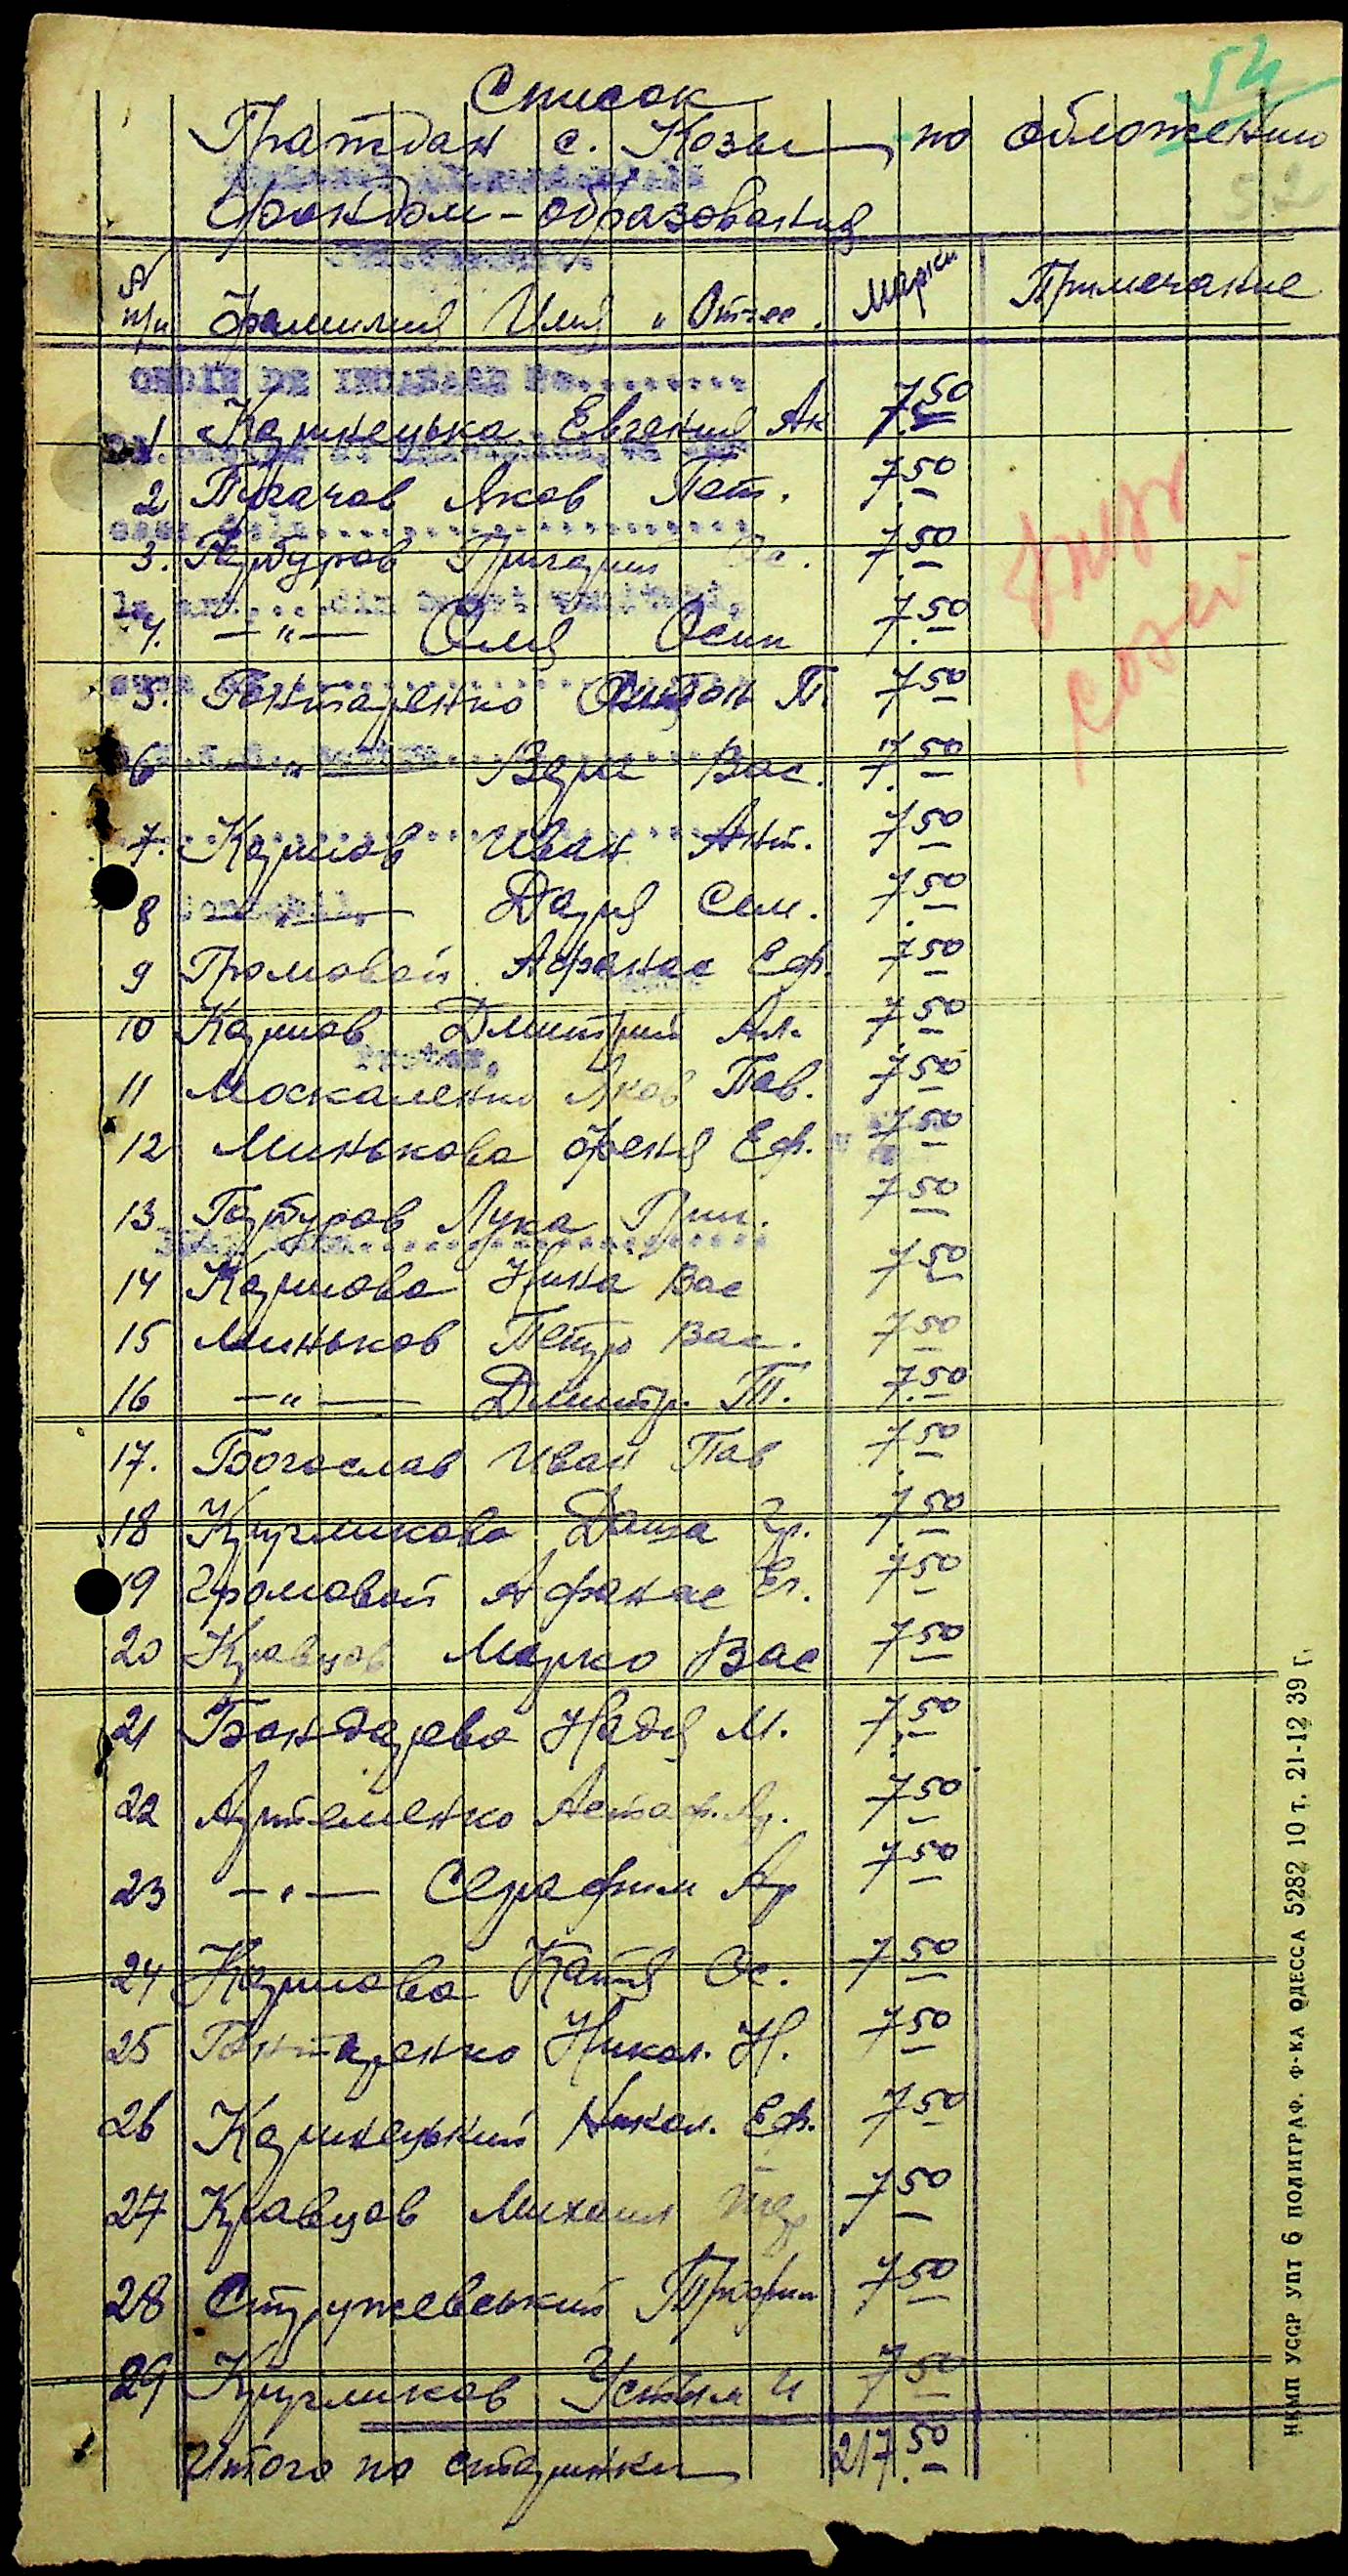 54
Список
Граждан с. Козы по обложению
52
Фондом-образования
№ п/п Фамилия Имя и Отчес. Марки Примечание
1 Карнецька Евгения Ак 7.50
2 Пугачов Яков Пет. 7.50
3. Гарбузов Григории 7.50
4. —"— Оля Осип 7.50
5. Гонтаренко Антон П. 7.50
6 —"— Вера Вас. 7.50
7. Карпов Иван Ант. 7.50
8 —"— Даря Сем. 7.50
9 Громовой Афанас Еф. 7.50
10 Карпов Дмитрий Ал. 7.50
11 Москаленко Яков Пав. 7.50
12 Минькова Феня Еф. 7.50
13 Лука Гри. 7.50
14 Карпова Нина Вас 7.50
15 Миньков Петро Вас. 7.50
16 —"— Дмитр. П. 7.50
17. Богослав Иван Пав 7.50
18 Кругликова Даша Гр. 7.50
19 Громовой Афанас Ег. 7.50
20 Кравцов Марко Вас 7.50
21 Бондарева Надя М. 7.50
22 Артеменко Астаф. Ар. 7.50
23 —"— Серафим Ар 7.50
24 Карпова Катя Ос. 7.50
25 Гонтаренко Никол. Н. 7.50
26 Карнецький Никол. Еф. 7.50
27 Кравцов Михаил 7.50
28 Стружевський Трофим 7.50
29 Кругликов Устим И 7.50
Итого по старинки 217.50
НКМП УССР УПТ 6 ПОЛИГРАФ. Ф-КА ОДЕССА 5282 10 т. 21-12 39 г.